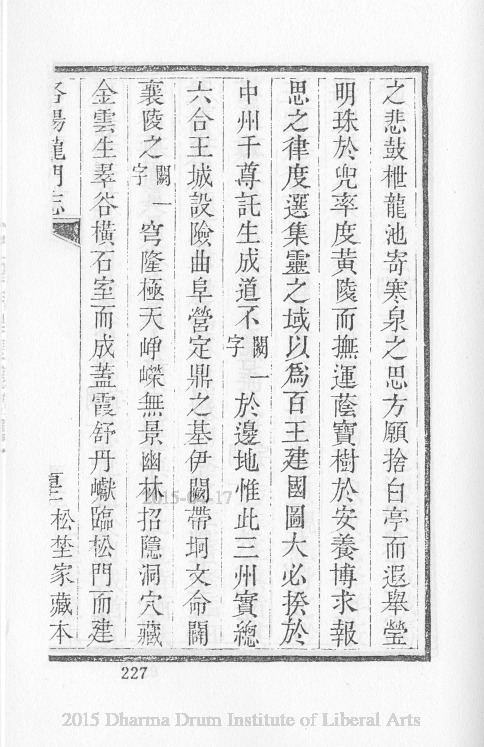 之悲鼓枻龍池寄寒泉之思方願捨白亭而遐舉瑩
明珠於兜率度黃陵而撫運蔭寶樹於安養博求報
思之律度選集靈之域以爲百王建國圖大必揆於
中州千尊託生成道不闕一字於邊地惟此三州實總
六合王城設險曲阜營定鼎之基伊闕帶坰文命闢
襄陵之闕一字穹隆極天崢嶸無景幽林招隱洞穴藏
金雲生翠谷橫石室而成蓋霞舒丹巘臨松門而建
洛陽龍門志
松埜家藏本
227
2015 Dharma Drum Institute of Liberal Arts